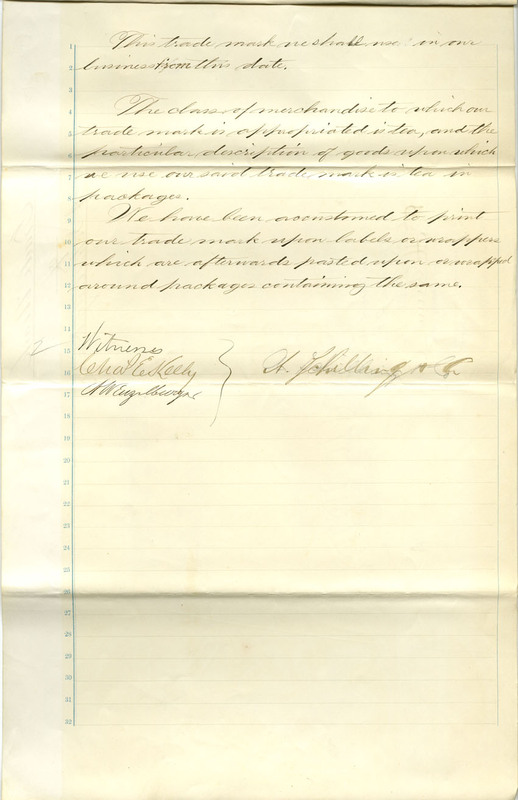 This trade mark we shall use in our
business from this date.
The class of merchandise to which our
trade mark is appropriated is tea, and the
particular description of goods upon which
we use our said trade mark is tea in
packages.
We have been accustomed to print
our trade mark upon labels or wrappers
which are afterwards pasted upon or wrapped
around packages containing the same.
Witness
Chas E. Kelly
A. Schilling & Co
1
2
3
4
5
6
7
8
9
10
11
12
13
14
15
16
17
18
19
20
21
22
23
24
25
26
27
28
29
30
31
32
2